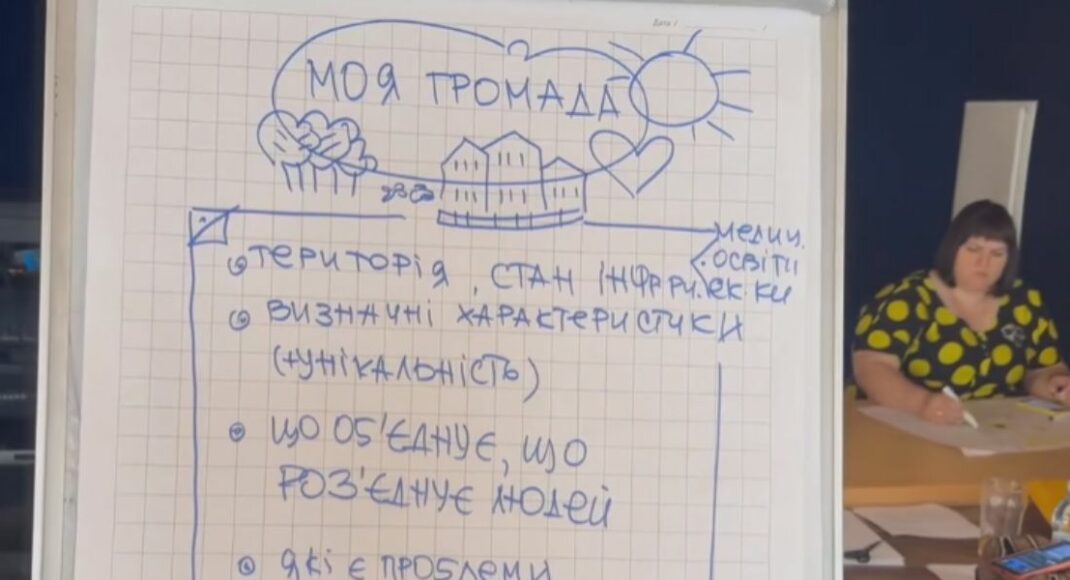 Дата
МОЯ ГРОМАДА
медич.
освіти
ТЕРИТОРІЯ, СТАН
ек. ки
ВИЗНАЧНІ ХАРАКТЕРИСТИКИ
(+УНІКАЛЬНІСТЬ)
ЩО ОБ'ЄДНУЄ, ЩО
РОЗ'ЄДНУЄ ЛЮДЕЙ
ЯКІ Є ПРОБЛЕМИ